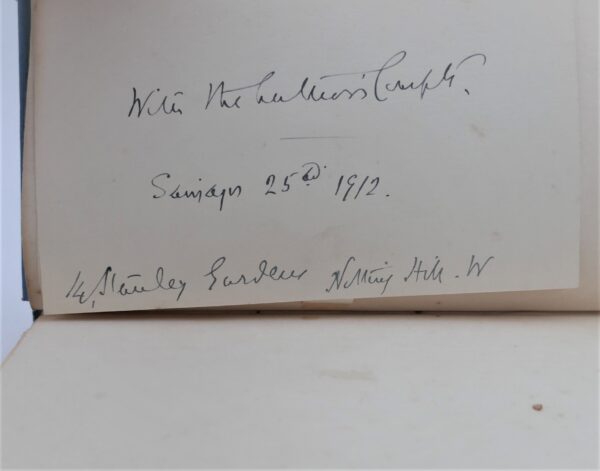 With the Author's Compts.
January 25th 1912.
14, Stanley Gardens Notting Hill. W